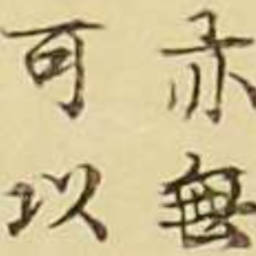 亦無
可以